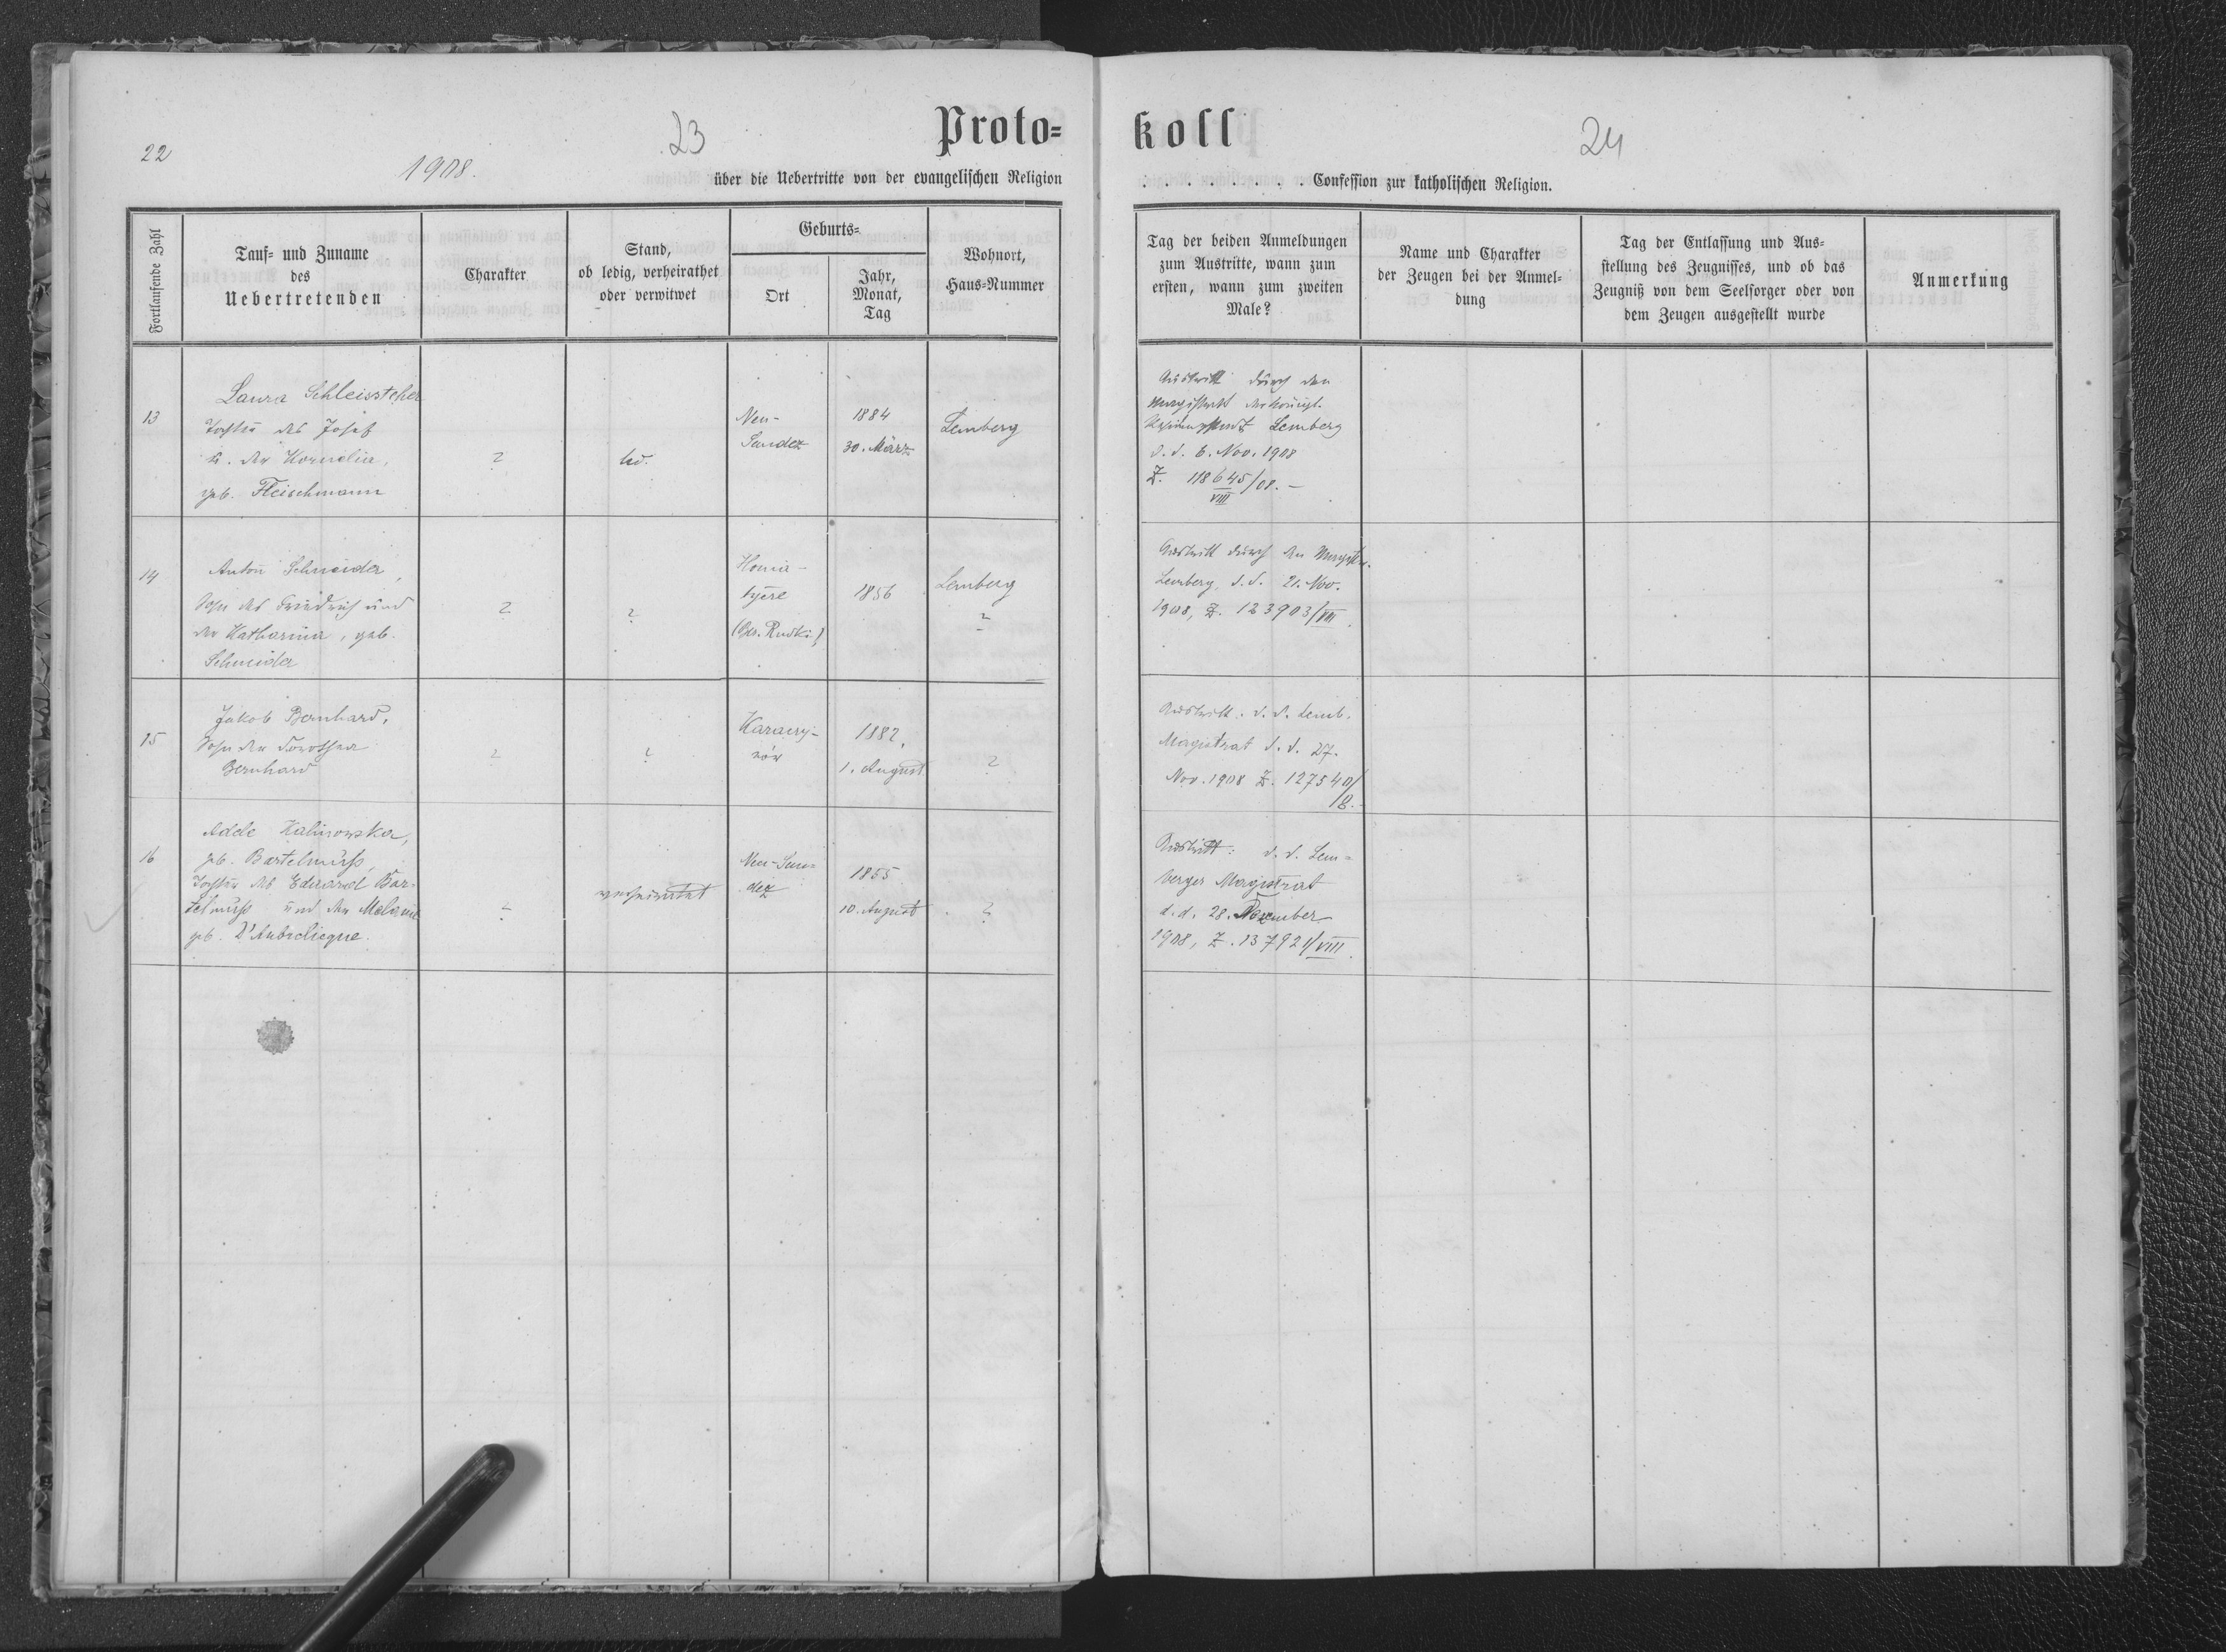 22
1908.
23
Proto=
über die Uebertritte von der evangelischen Religion
Fortlaufende Zahl
Tauf= und Zuname
des
Uebertretenden
Charakter
Stand,
ob ledig, verheirathet
oder verwitwet
Geburts=
Ort
Jahr,
Monat,
Tag
Wohnort,
Haus=Nummer
13
Laura Schleissteher
Tochter des Josef
u. der Kornelia,
geb. Fleischmann
?
led.
Neu-
Sandez
1884
30. März
Lemberg
14
Anton Schneider,
Sohn des Friedrich und
der Katharina, geb.
Schneider
?
?
(Bez. Rudki)
1856
Lemberg
?
15
Jakob Bernhard,
Sohn der Dorothea
Bernhard
?
?
Karaczy-
nów
1882,
1. August
?
16
Adele Kalinowska,
geb. Bartelmuss,
Tochter des Eduard Bar-
telmuss und der Melanie
geb. D'Aubrelicque.
?
verheiratet
Neu-San=
dez
1855
10. August
?
koll
24
. . . . . . . . Confession zur katholischen Religion.
Tag der beiden Anmeldungen
zum Austritte, wann zum
ersten, wann zum zweiten
Male?
Name und Charakter
der Zeugen bei der Anmel=
dung
Tag der Entlassung und Aus=
stellung des Zeugnisses, und ob das
Zeugniß von dem Seelsorger oder von
dem Zeugen ausgestellt wurde
Anmerkung
Austritt durch den
Magistrat der königl.
Hauptstadt Lemberg
d. d. 6. Nov. 1908
Z. 118645/08. –
VIII
Austritt durch den Magistr.
Lemberg, d. d. 21. Nov.
1908, Z. 123903/VIII.
Austritt: d. d. Lemb.
Magistrat d. d. 27.
Nov. 1908 Z. 127540/
/8.-
Austritt: d. d. Lem=
berger Magistrat
d. d. 28. Dezember
1908, Z. 137921/VIII.